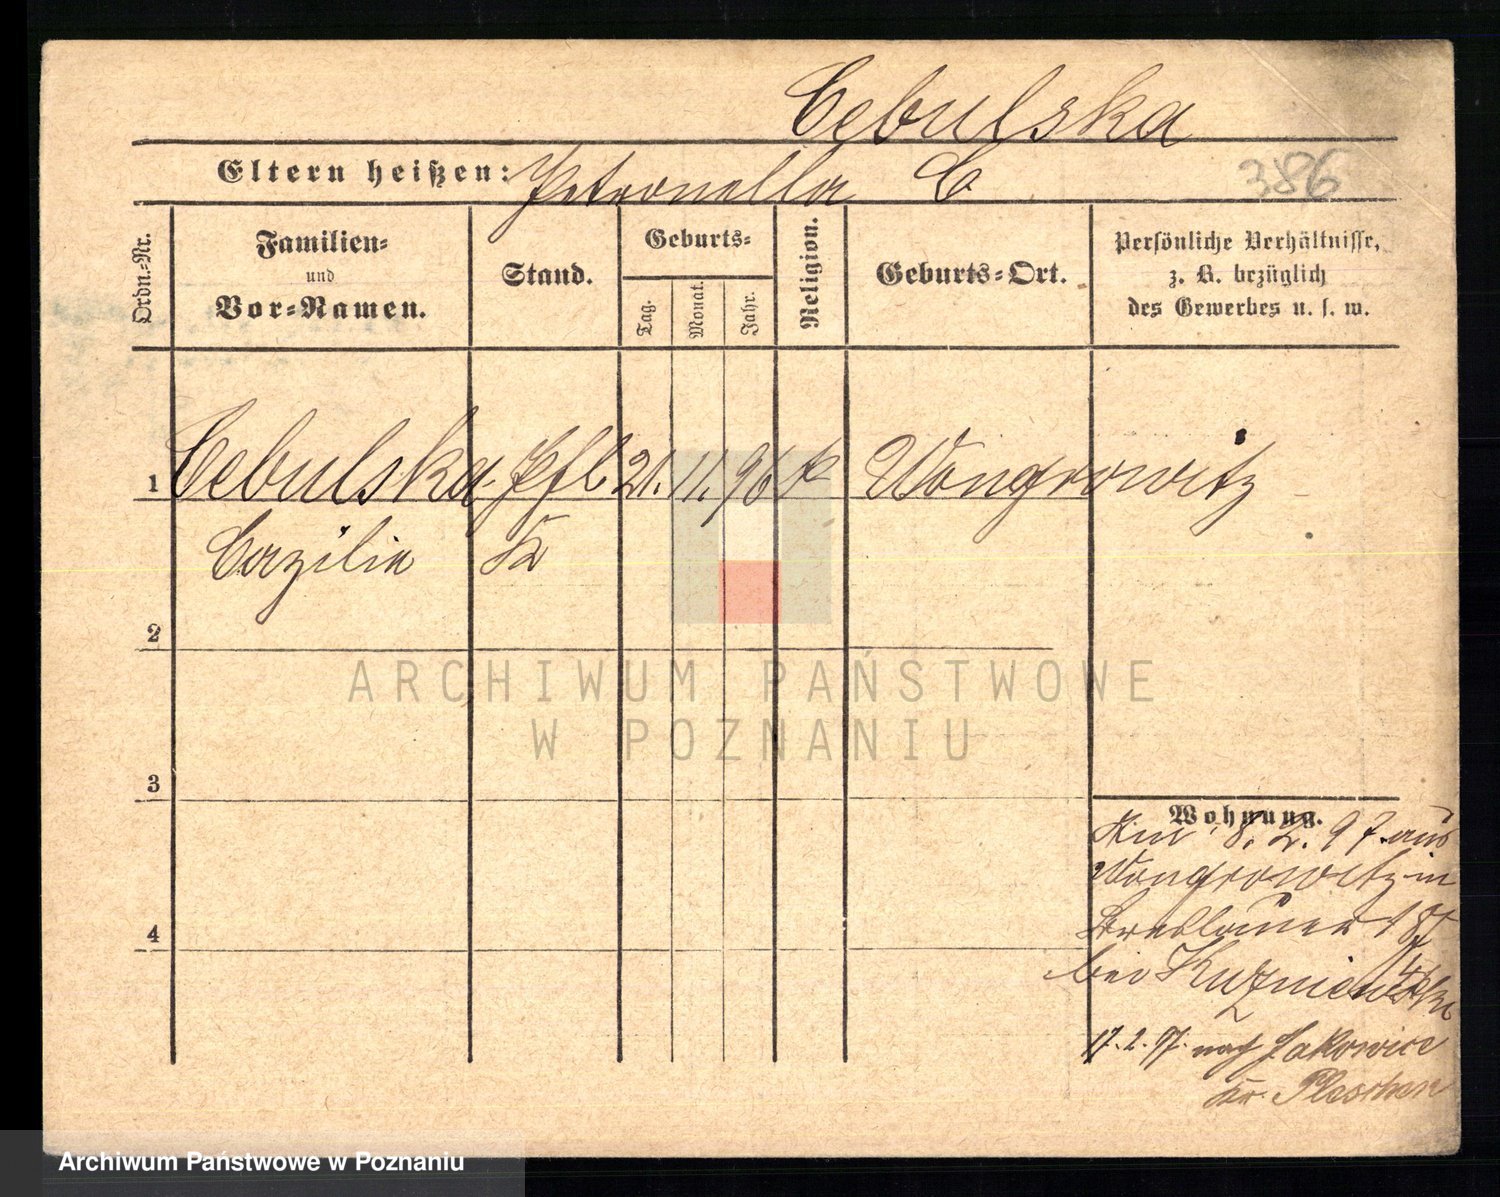 Cebulska
Eltern heißen: Petronella C
386
Ordn.-Nr.
Familien-
und
Vor-Namen.
Stand.
Geburts-
Tag.
Monat.
Jahr.
Religion.
Geburts-Ort.
Persönliche Verhältnisse,
z. B. bezüglich
des Gewerbes u. s. w.
1 Cebulska Pfl 21. 11. 96 k Wongrowitz
Cäzilia
2
3
4
Wohnung.
8. 2. 97 aus
Wongrowitz in
Breslauer
bei Kuzniewski
17. 2. 97. nach Jakowice
Kr. Pleschen
ARCHIWUM PAŃSTWOWE
W POZNANIU
Archiwum Państwowe w Poznaniu